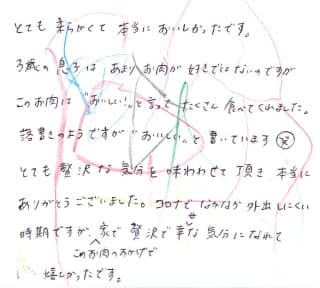 とても 柔らかくて 本当に おいしかったです。
3歳の 息子は あまり お肉が 好きではないのですが
このお肉は "おいしい!"と 言って たくさん 食べてくれました。
落書きのようですが "おいしい"と 書いています 笑
とても 贅沢な 気分を 味わわせて 頂き 本当に
ありがとうございました。コロナで なかなか 外出しにくい
時期ですが、家で 贅沢で 幸せな 気分になれて
このお肉のおかげで
嬉しかったです。